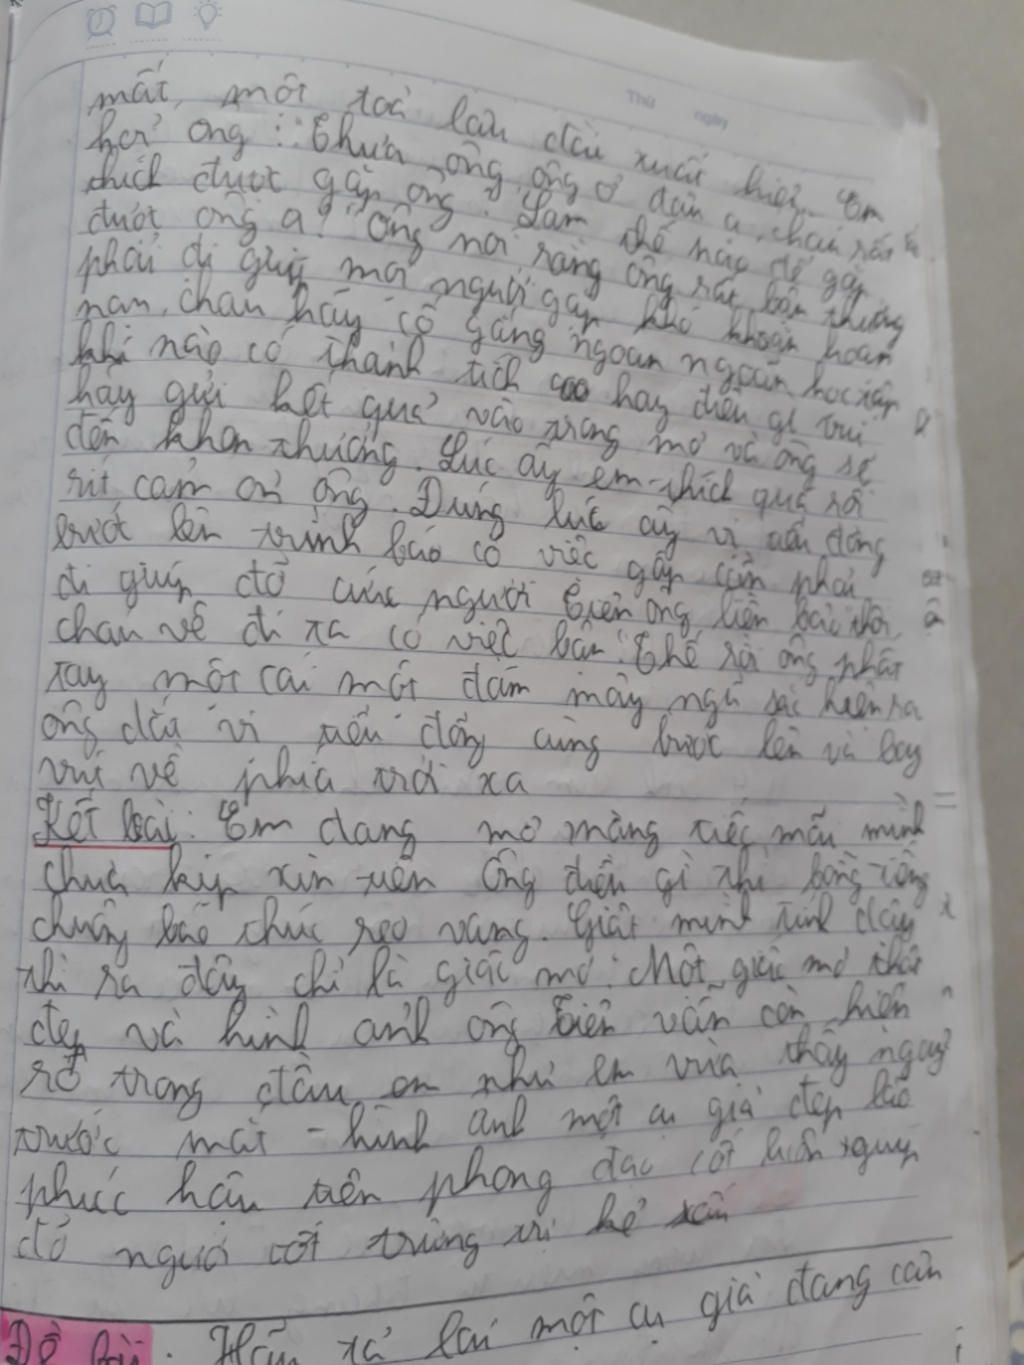 Thứ ngày
mất, một toà lâu đài xuất hiện. Em
hỏi ông: "Thưa ông, ông ở đâu ạ, cháu rất
thích được gặp ông. Làm thế nào để gặp
được ông ạ?" Ông nói rằng ông rất bận thường
phải đi giúp mọi người gặp khó khăn hoạn
nạn, cháu hãy cố gắng ngoan ngoãn học tập
khi nào có thành tích hay điều gì vui
hãy gửi kết quả vào trong mơ và ông sẽ
đến khen thưởng. Lúc ấy em thích quá rối
rít cảm ơn ông. Đúng lúc ấy vị tiểu đồng
bước lên trình báo có việc gấp cần phải
đi giúp đỡ cứu người Tiên ông liền bảo thôi,
cháu về đi ta có việc bận". Thế rồi ông phất
tay một cái một đám mây ngũ sắc hiện ra
ông dấu vị tiểu đồng cùng bước lên và bay
vút về phía trời xa
Kết bài: Em đang mơ màng tiếc mãi mình
chưa kịp xin tiên ông điều gì thì bỗng tiếng
chuông báo thức reo vang. Giật mình tỉnh dậy
thì ra đây chỉ là giấc mơ. Một giấc mơ thật
đẹp và hình ảnh ông tiên vẫn còn hiện
rõ trong đầu em như em vừa thấy ngay
trước mắt - hình ảnh một cụ già đẹp lão
phúc hậu tiên phong đạo cốt luôn giúp
đỡ người tốt trừng trị kẻ xấu
Đề bài: Hãy tả lại một cụ già đang câu